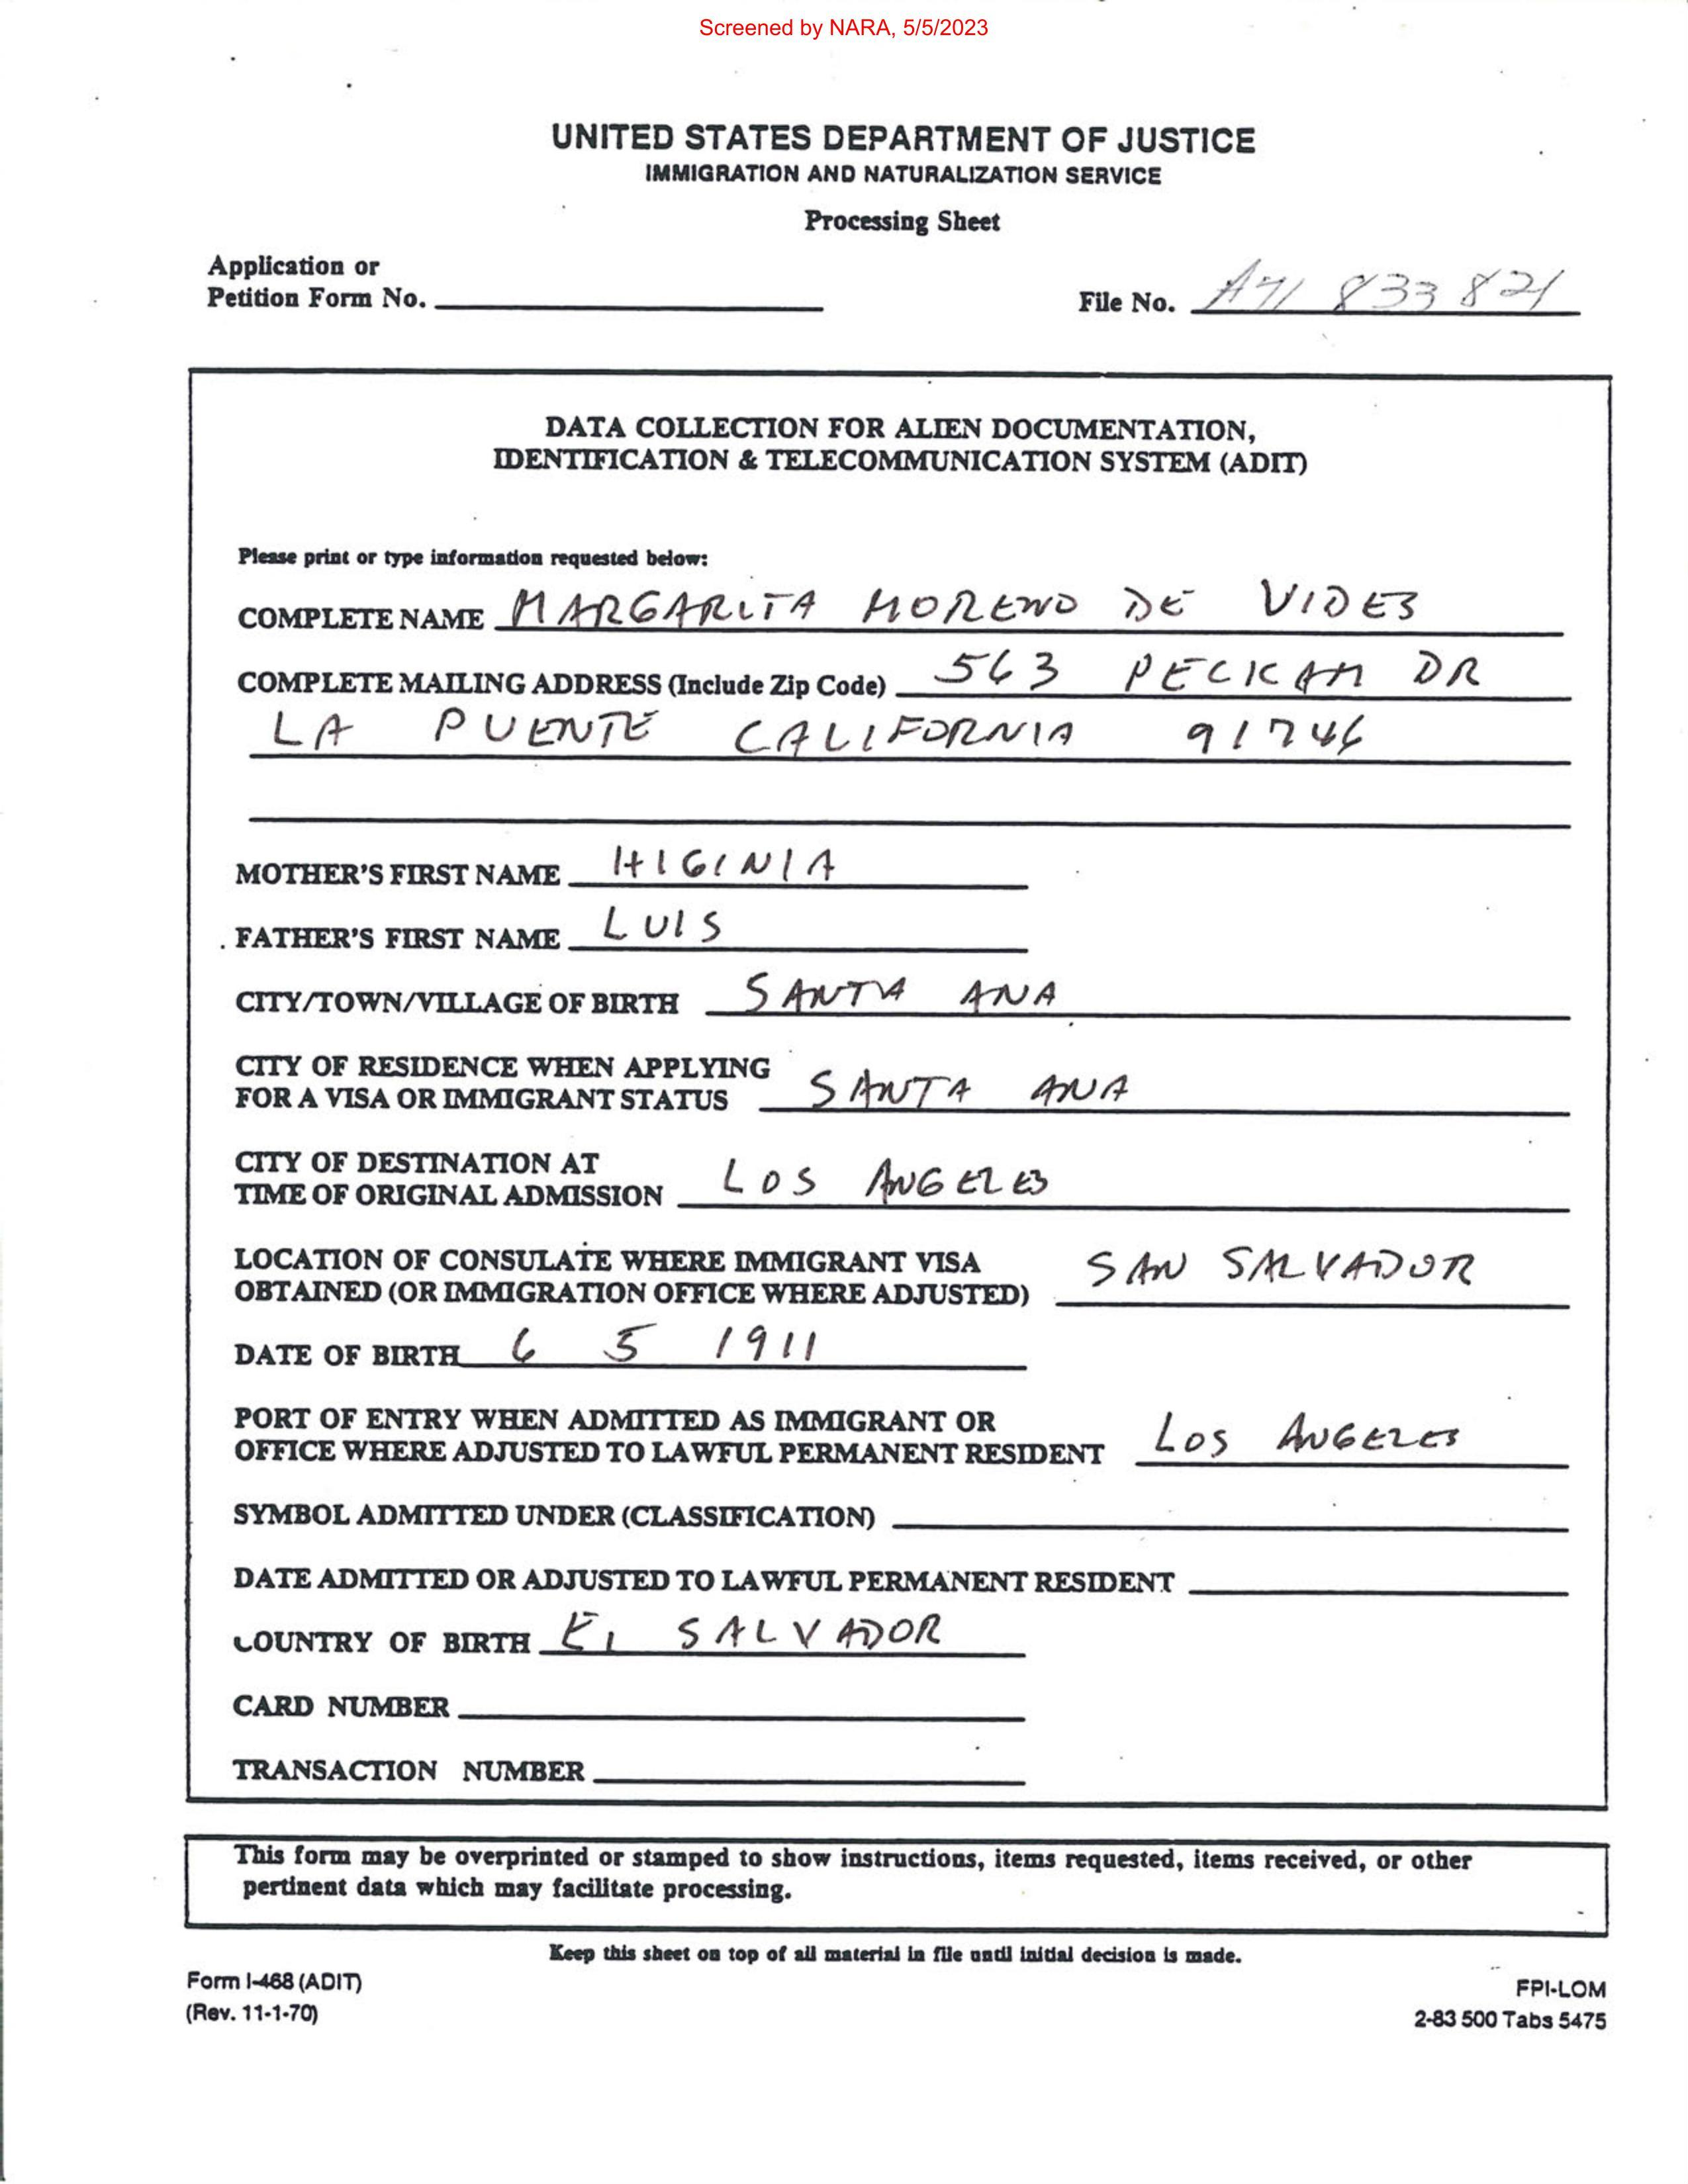 Screened by NARA, 5/5/2023
UNITED STATES DEPARTMENT OF JUSTICE
IMMIGRATION AND NATURALIZATION SERVICE
Processing Sheet
Application or
Petition Form No.
File No. A71 833 821
DATA COLLECTION FOR ALIEN DOCUMENTATION,
IDENTIFICATION & TELECOMMUNICATION SYSTEM (ADIT)
Please print or type information requested below:
COMPLETE NAME MARGARITA MORENO DE VIDES
COMPLETE MAILING ADDRESS (Include Zip Code) 563 PECKAM DR
LA PUENTE CALIFORNIA 91746
MOTHER'S FIRST NAME HIGINIA
FATHER'S FIRST NAME LUIS
CITY/TOWN/VILLAGE OF BIRTH SANTA ANA
CITY OF RESIDENCE WHEN APPLYING
FOR A VISA OR IMMIGRANT STATUS SANTA ANA
CITY OF DESTINATION AT
TIME OF ORIGINAL ADMISSION LOS ANGELES
LOCATION OF CONSULATE WHERE IMMIGRANT VISA
OBTAINED (OR IMMIGRATION OFFICE WHERE ADJUSTED) SAN SALVADOR
DATE OF BIRTH 6 5 1911
PORT OF ENTRY WHEN ADMITTED AS IMMIGRANT OR
OFFICE WHERE ADJUSTED TO LAWFUL PERMANENT RESIDENT LOS ANGELES
SYMBOL ADMITTED UNDER (CLASSIFICATION)
DATE ADMITTED OR ADJUSTED TO LAWFUL PERMANENT RESIDENT
COUNTRY OF BIRTH EL SALVADOR
CARD NUMBER
TRANSACTION NUMBER
This form may be overprinted or stamped to show instructions, items requested, items received, or other
pertinent data which may facilitate processing.
Keep this sheet on top of all material in file until initial decision is made.
Form I-468 (ADIT)
(Rev. 11-1-70)
FPI-LOM
2-83 500 Tabs 5475